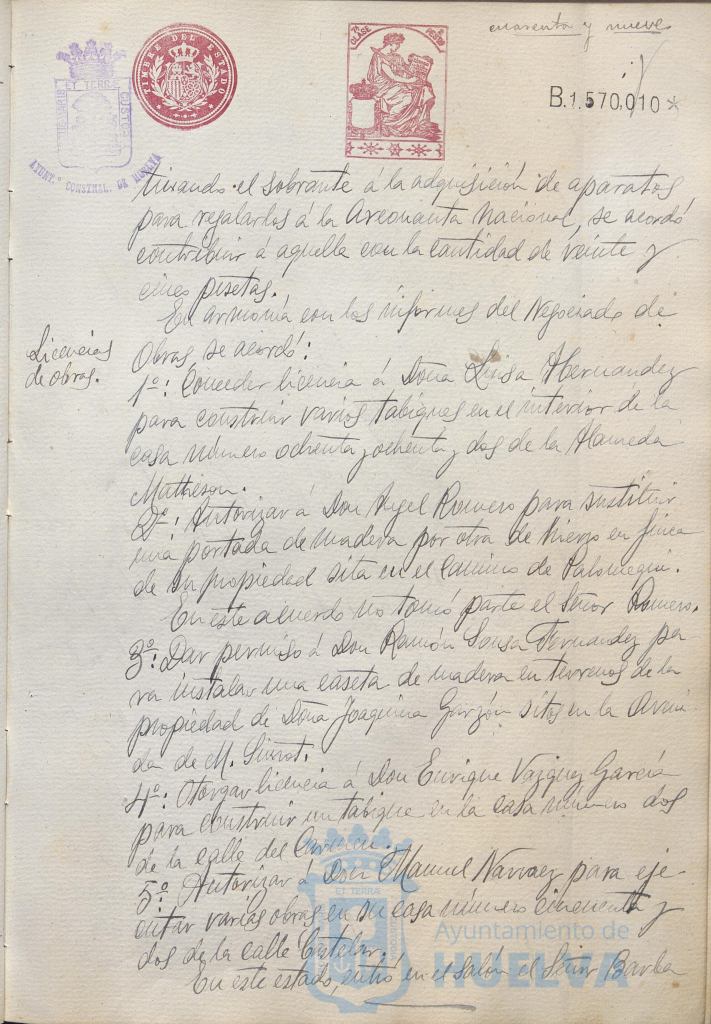 cuarenta y nueve
TIMBRE DEL ESTADO
7ª CLASE
B.1.570,010*
ET TERRÆ CUSTOS
AYUNT.º CONSTNAL. DE HUELVA
tinando el sobrante á la adquisición de aparatos
para regalarlos á la Areonauta Nacional, se acordó
contribuir á aquella con la cantidad de veinte y
cinco pesetas.
En armonía con los informes del Negociado de
Licencias
de obras.
Obras se acordó:
1º: Conceder licencia á Doña Luisa Hernandez
para construir varios tabiques en el interior de la
casa número ochenta y ochenta y dos de la Alameda
Matheson.
2º: Autorizar á Don Angel Romero para sustituir
una portada de madera por otra de hierro en finca
de su propiedad sita en el Camino de
En este acuerdo no tomó parte el Señor Romero.
3º: Dar permiso á Don Ramón Sousa Fernandez pa-
ra instalar una caseta de madera en terrenos de la
propiedad de Doña Joaquina Garzón sitos en la Aveni-
da de M. Siurot.
4º: Otorgar licencia á Don Enrique Vazquez García
para construir un tabique en la casa número dos
de la calle del Carmen.
5º: Autorizar á Don Manuel Narvaez para eje-
cutar varias obras en su casa número cincuenta y
dos de la calle Castelar.
En este estado, entró en el salón el Señor Barba
Ayuntamiento de
HUELVA